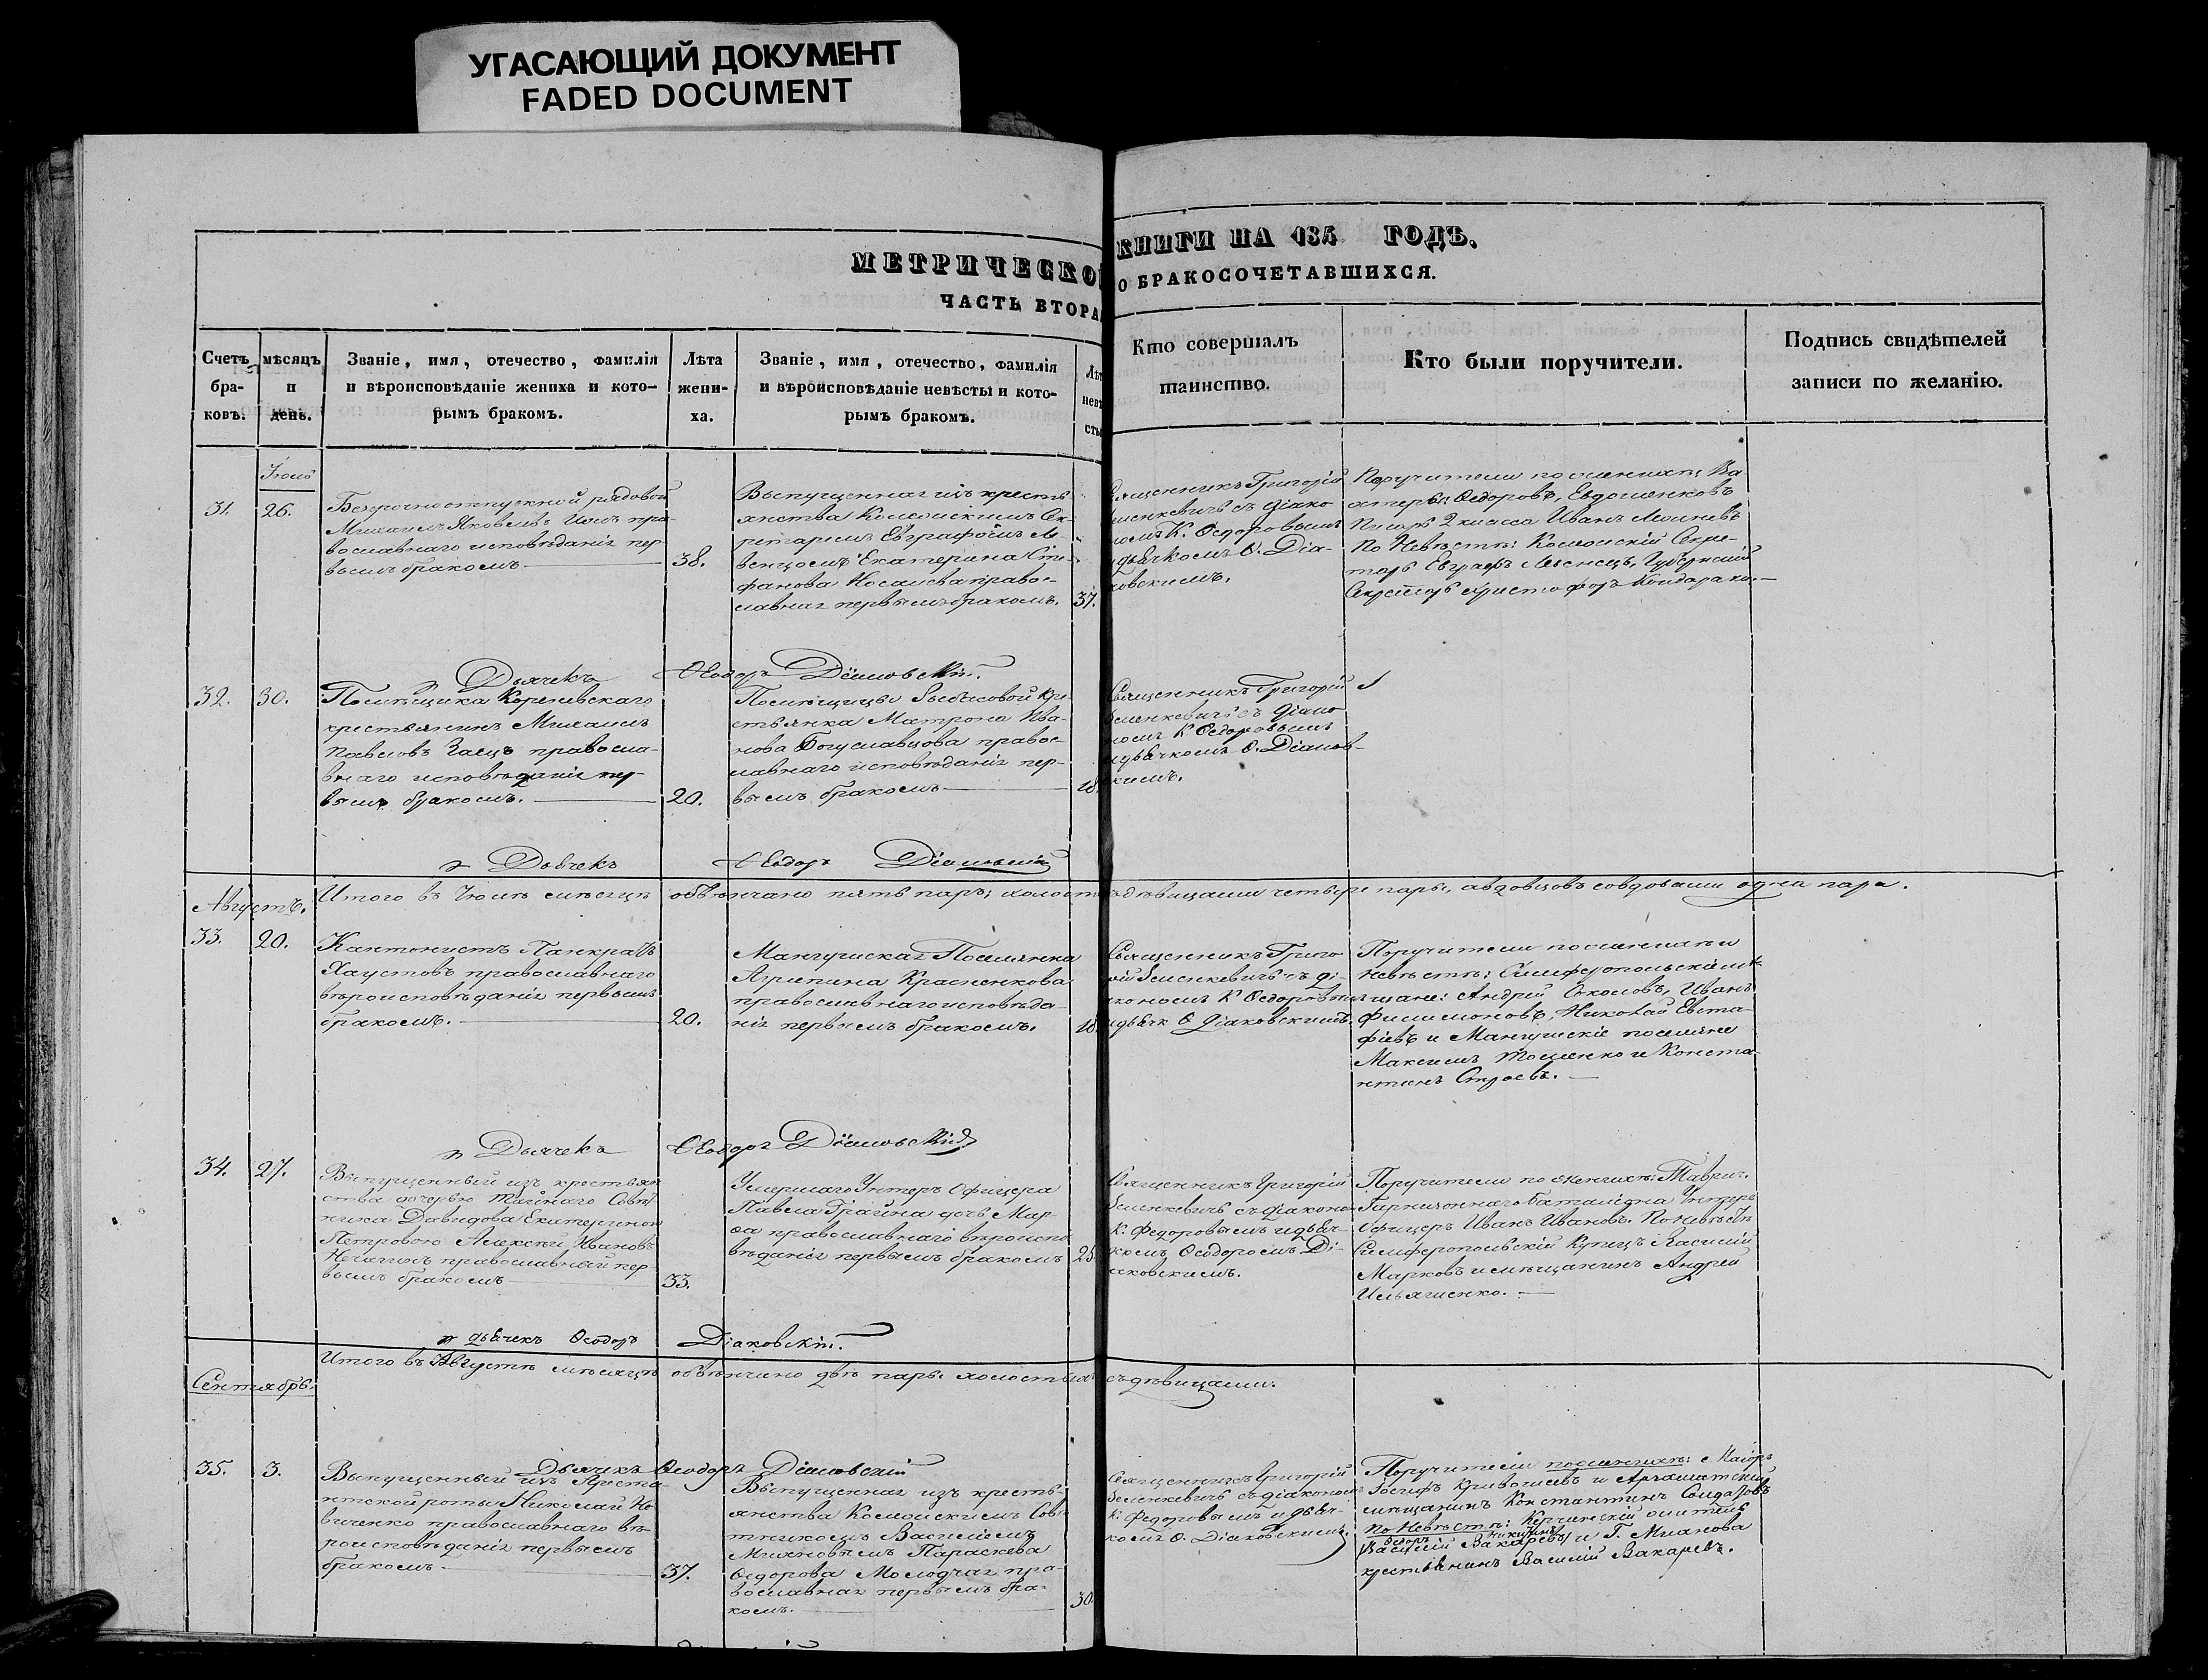 УГАСАЮЩИЙ ДОКУМЕНТ
FADED DOCUMENT
МЕТРИЧЕСКО КНИГИ НА 185 ГОДЪ.
ЧАСТЬ ВТОРА О БРАКОСОЧЕТАВШИХСЯ.
Счетъ бра-ковъ.
мѣсяцъ и день.
Званіе, имя, отечество, фамилія
и вѣроисповѣданіе жениха и кото-
рымъ бракомъ.
Лѣта
жени-
ха.
Званіе, имя, отечество, фамилія
и вѣроисповѣданіе невѣсты и кото-
рымъ бракомъ.
Лѣт
невѣ
сты
Кто совершалъ
таинство.
Кто были поручители.
Подпись свидѣтелей
записи по желанію.
31.
26.
Безсрочноотпускной рядовой
Михаилъ Яковлевъ пра-
вославнаго исповѣданія пер
вымъ бракомъ
38.
Выпущенная изъ кресть
янства Коллежскимъ Сек-
ретаремъ Евграфомъ
Екатерина Сте-
фанова правос-
лавная первымъ бракомъ.
37.
вященникъ Григорій
еленкевичь съ діако
номъ К. Ѳедоровымъ
и дьячкомъ Ѳ. Діа-
ковскимъ.
Поручители по женихѣ: Ва
Ѳедоровъ, Евдошенковъ
Писарь 2 класса Иванъ
По Невѣстѣ: Коллежскій Секре-
тарь Евграфъ Губернскій
Секретарь Христофоръ Кондараки.
Дьячекъ Ѳеодоръ Діаковскій.
32.
30.
Помѣщика Корсневскаго
крестьянинъ Михаилъ
Павловъ Заецъ правосла-
внаго исповѣданія пер-
вымъ бракомъ.
20.
Помѣщицы кре-
стьянка Матрона Ива-
нова Богуславцова правос-
лавнаго исповѣданія пер-
вымъ бракомъ
18.
Священникъ Григорій
еленкевичь съ діако
номъ К Ѳедоровымъ
и дьячкомъ Ѳ. Діаков-
скимъ.
Дьячекъ Ѳеодоръ Діаковскій
Итого въ Іюлѣ мѣсяцѣ обвѣнчано пять паръ; холост дѣвицами четыре пары, авдовцовъ совдовами одна пара.
Августъ.
33.
20.
Кантонистъ Панкратъ
Хаустовъ православнаго
вѣроисповѣданія первымъ
бракомъ.
20.
Мангушская Поселянка
Агрипина Красненкова
православнаго исповѣда-
нія первымъ бракомъ.
18.
Священникъ Григо
рій Зеленкевичь съ ді-
акономъ К Ѳедоровымъ
и дьячк Ѳ Діаковскимъ.
Поручители по женихѣ и
невѣстѣ: Симферопольскіе мѣ-
щане: Андрей Соколовъ, Иванъ
Филимоновъ, Николай Евста-
фіевъ и Мангушскіе поселяне
Максимъ Тощенко и Конста-
нтинъ Строевъ.
Дьячекъ Ѳеодоръ Діаковскій
34.
27.
Выпущенный изъ крестьян
ства дочерью тайнаго Совѣт
ника Давыдова Екатериною
Петровою Алексѣй Ивановъ
Нечаинъ православный пер
вымъ бракомъ
33.
Умершаго Унтеръ Офицера
Павла Грагина дочь Мар-
ѳа православнаго вѣроиспо
вѣданія первымъ бракомъ
25.
Священникъ Григорій
Зеленкевичь съ діакономъ
К. Федоровымъ и дьяч-
комъ Ѳеодоромъ Ді-
аковскимъ.
Поручители по женихѣ: Таврич.
Гарнизоннаго баталіона Унтеръ
Офицеръ Иванъ Ивановъ. По невѣстѣ
Симферопольскій Купецъ Василій
Марковъ и мѣщанинъ Андрей
Ильяшенко.
дьячекъ Ѳеодоръ Діаковскій.
Итого въ Августѣ мѣсяцѣ обвѣнчано двѣ пары холостыхъ съ дѣвицами.
Сентябрь.
Дьячекъ Ѳеодоръ Діаковскій
35.
3.
Выпущенный изъ Ареста-
нтской роты Николай
православнаго вѣ-
роисповѣданія первымъ
бракомъ
37.
Выпущенная изъ кресть-
янства Коллежскимъ Совѣ
тникомъ Василіемъ
Мияновымъ Параскева
Ѳедорова Молодчая пра-
вославная первымъ бра-
комъ.
30.
Священникъ Григорій
Зеленкевичь съ діакономъ
К. Федоровымъ и дьяч-
комъ Ѳ. Діаковскимъ.
Поручители по женихѣ: Маіоръ
Іосифъ и
мѣщанинъ Константинъ
По Невѣстѣ:
Василій и Г. Мианова
крестьянинъ Василій Вакаревъ.